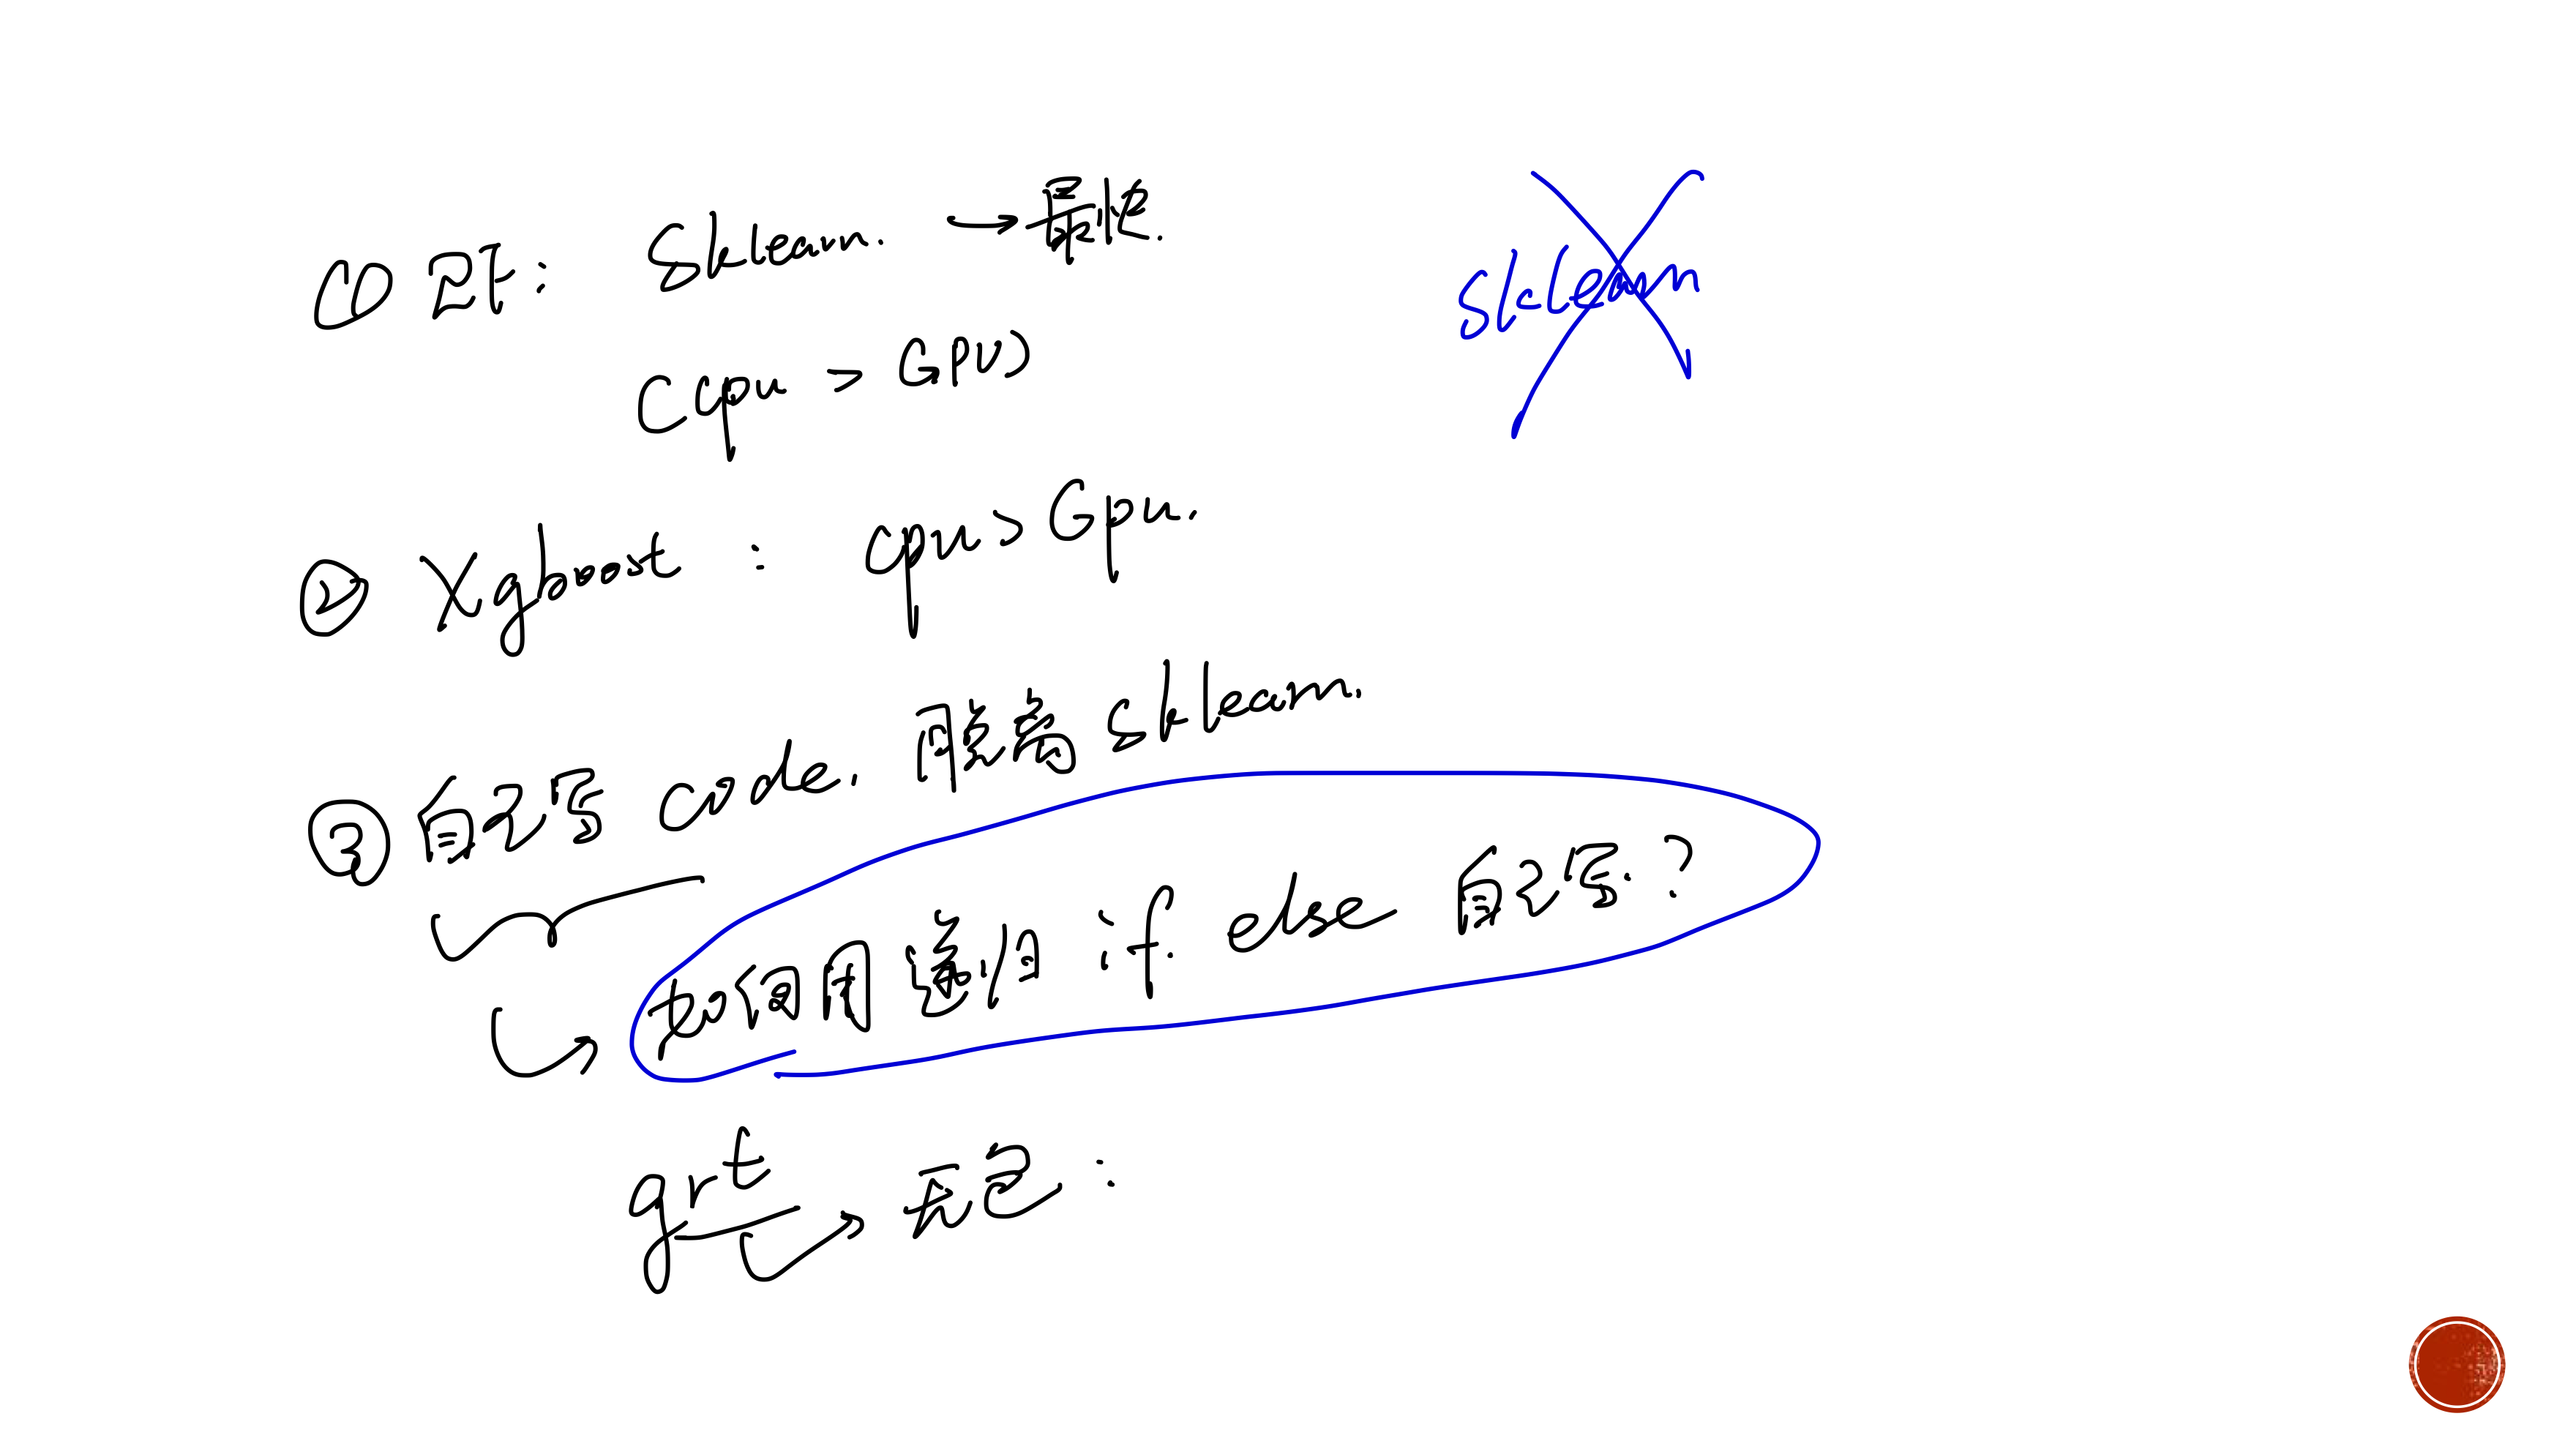 ① RF: Sklearn. → 最快.
(cpu > GPU)
sklearn
② Xgboost : cpu > Gpu.
③ 自己写 code. 脱离 sklearn.
如何用递归 if. else 自己写. ?
grt → 无包: